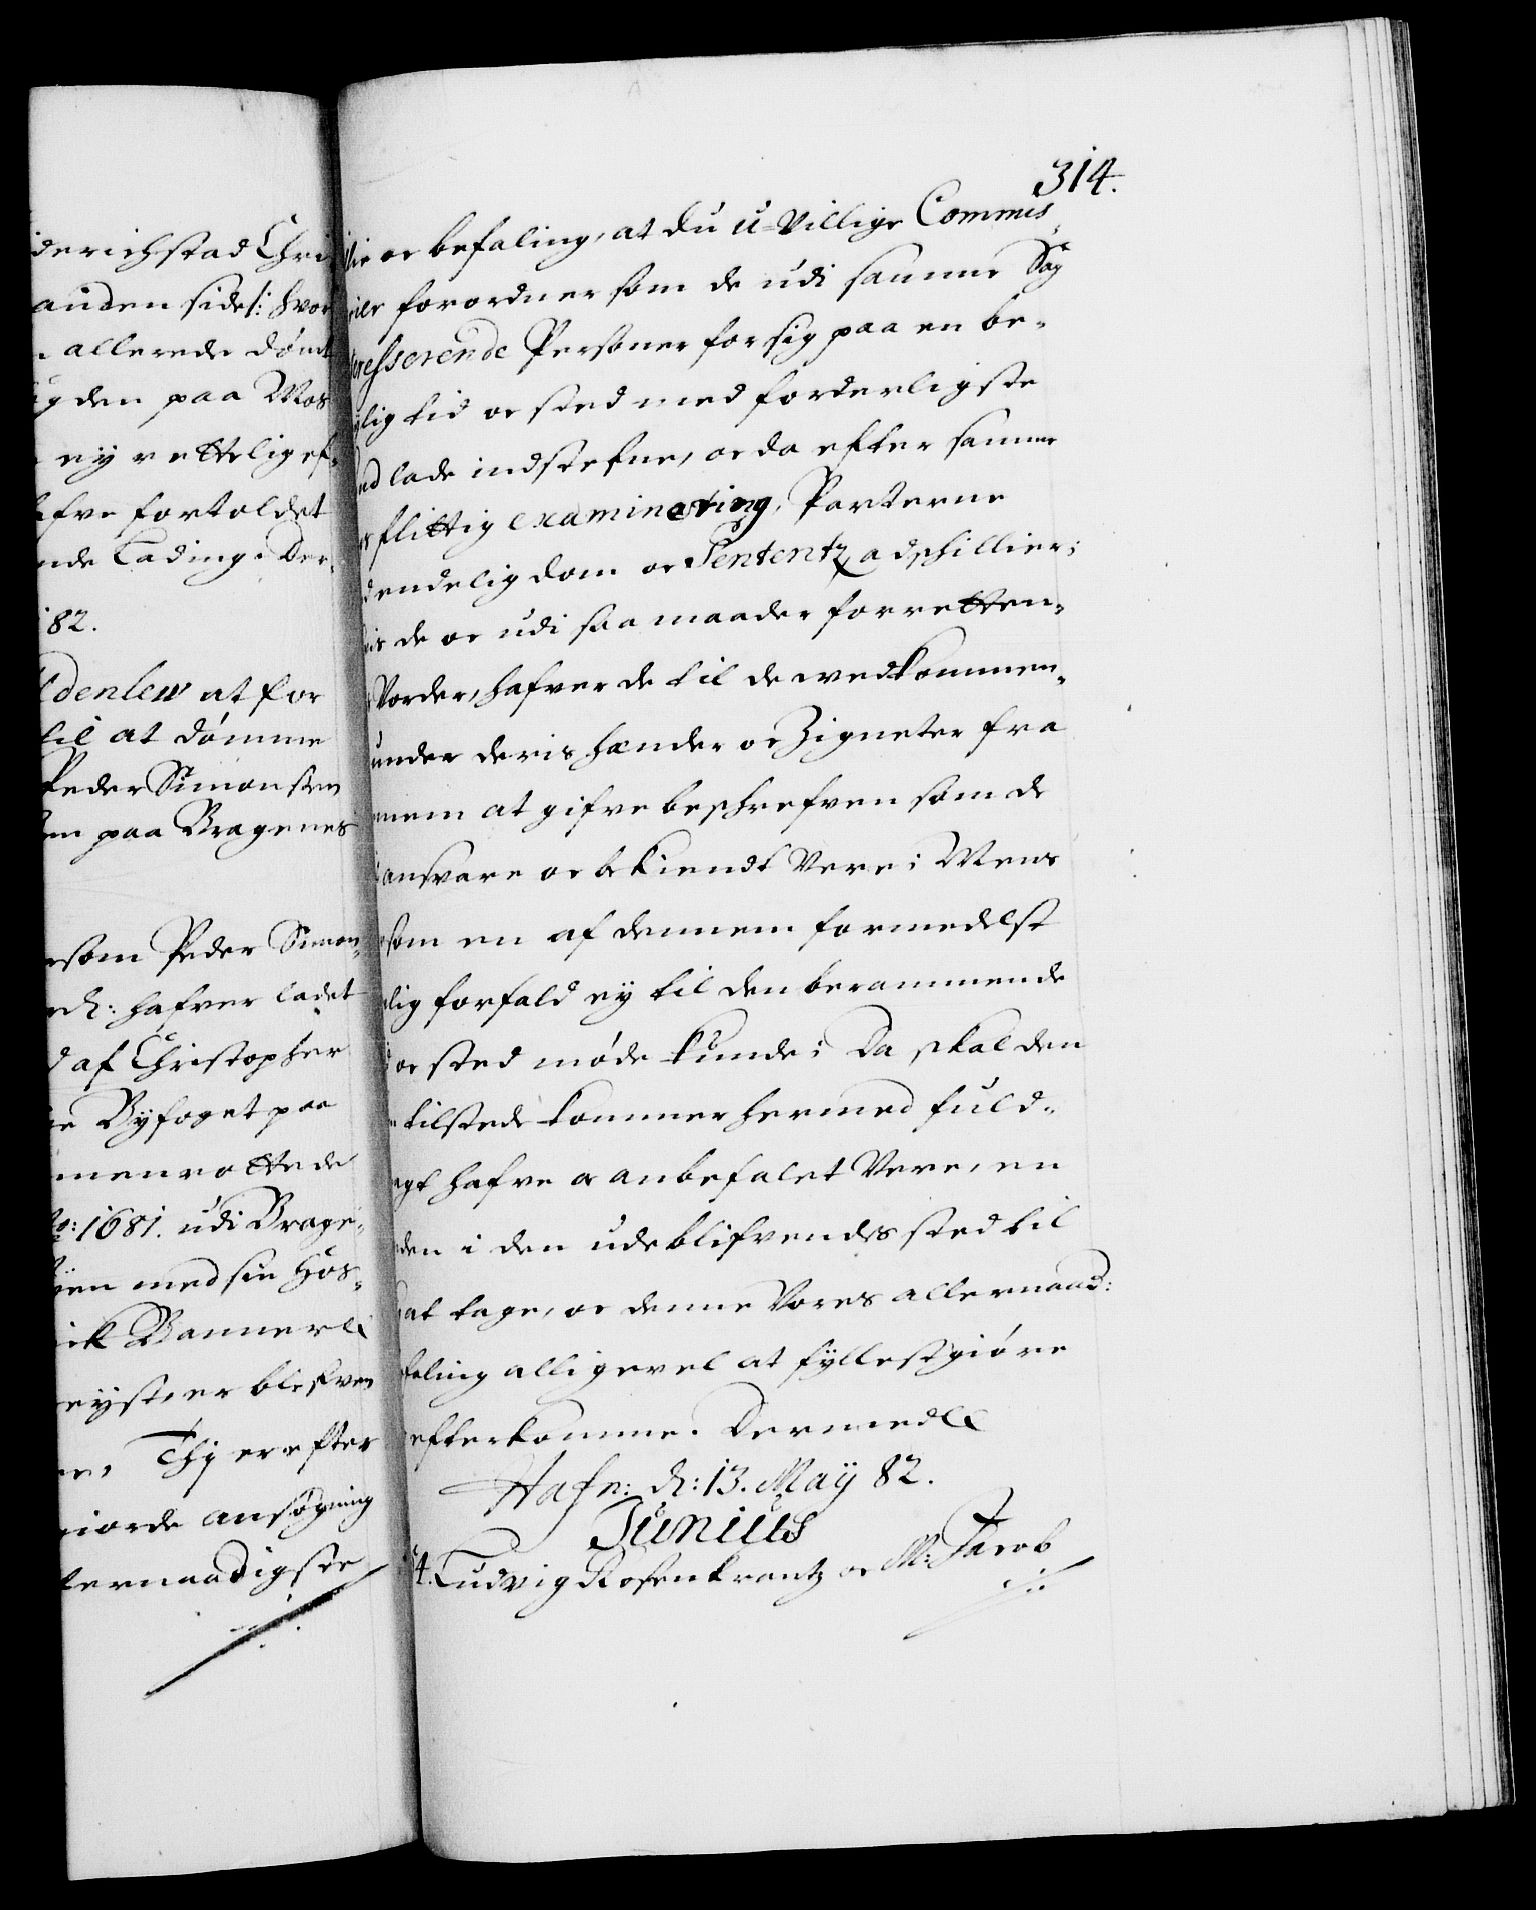 derichstad Chri
anden side /: hvor
allerede dømt
gden paa Mos
ey rettelig ef-
afve fortoldet
nde Lading. Der-
82.
ldenlew at for
til at dømme
Peder Simonsen
en paa Bragenes
som Peder Simon-
hafver ladet
af Christopher
Byfoget paa
menrottede
1681. udi Brage-
med sin Hos-
Banner
er blefven
Thj er efter
giorde ansøgning
lernaadigste
314.
lie oc befaling, at du u-villige Commis-
rier forordner som de udi samme Sag
teresserende Personer for sig paa en be-
lig tid oc sted med forderligste
lade indstefne, oc da efter samme
flittig examinering, Parterne
endelig dom oc Sententz adschillier;
de oc udi saa maader forretten-
Vorder, hafver de til de wedkommen-
under deris hænder oc Zigneter fra
nem at gifve beschrefven som de
ansvare oc bekiendt Vere; Mens
som en af dennem formedelst
lig forfald ey til den berammende
oc sted møde kunde; Da skal den
tilstede kommer hermed fuld-
agt hafve oc anbefalet Vere, en
den i den udeblifvendes sted til
at tage, oc denne Vores allernaad:
faling alligevel at fyllestgiøre
efterkomme. Dermed
Hafn: d: 13. May 82.
Junius
4. Ludvig Rosenkrantz oc M: Jacob